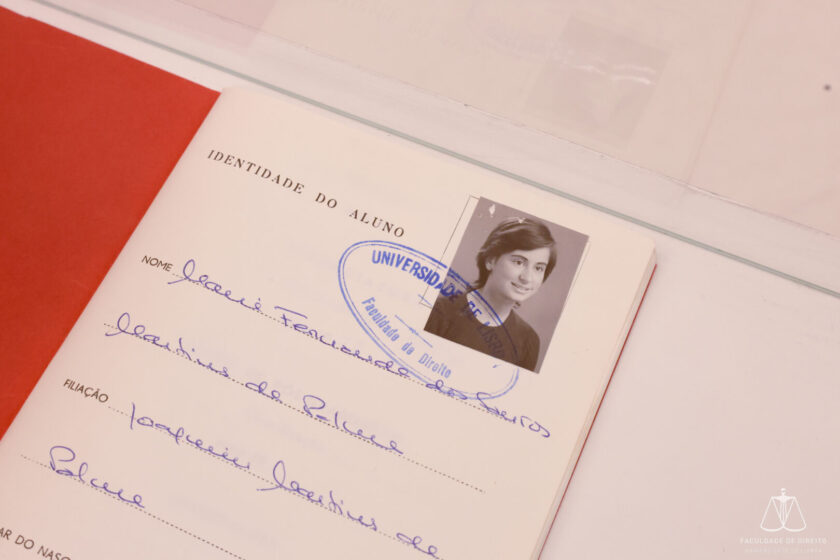 IDENTIDADE DO ALUNO
UNIVERSIDADE DE LISBOA
Faculdade de Direito
NOME Maria Fernanda dos Santos
Martins da Palma
FILIAÇÃO Joaquim Martins da
Palma
AR DO NASC
FACULDADE DE DIREITO
UNIVERSIDADE DE LISBOA